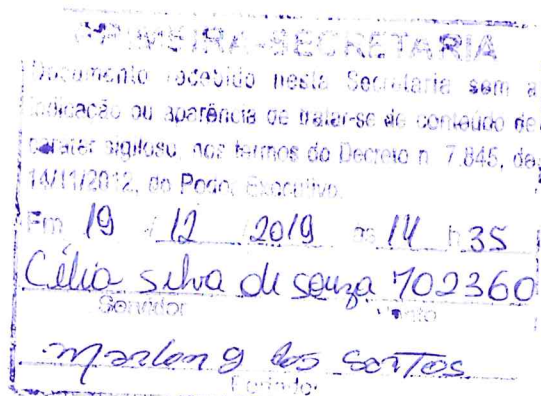 PRIMEIRA-SECRETARIA
Documento recebido nesta Secretaria sem a
indicação ou aparência de tratar-se de conteúdo de
caráter sigiloso, nos termos do Decreto n. 7.845, de
14/11/2012, do Poder Executivo.
Em 19 / 12 / 2019 às 14 h 35
Célia silva de souza 702360
Servidor Ponto
Marlon g dos santos
Portador